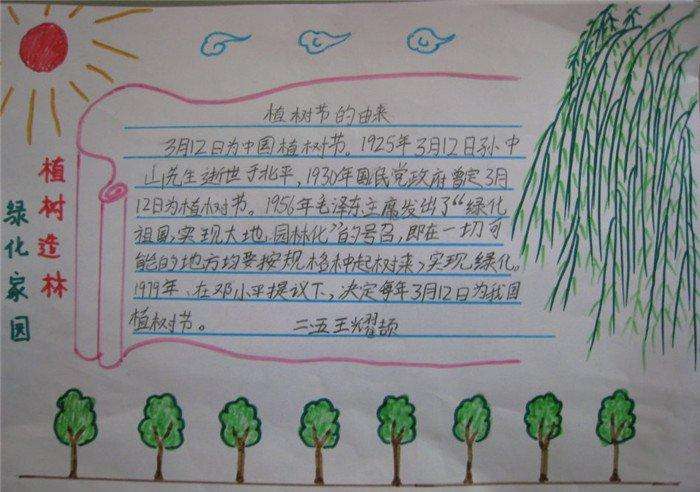 植树造林
绿化家园
植树节的由来
3月12日为中国植树节。1925年3月12日孙中
山先生逝世于北平,1930年国民党政府曾定3月
12日为植树节。1956年毛泽东主席发出了“绿化
祖国,实现大地园林化”的号召,即在一切可
能的地方均要按规格种起树来,实现绿化。
1979年、在邓小平提议下,决定每年3月12日为我国
植树节。 二.五王耀颉